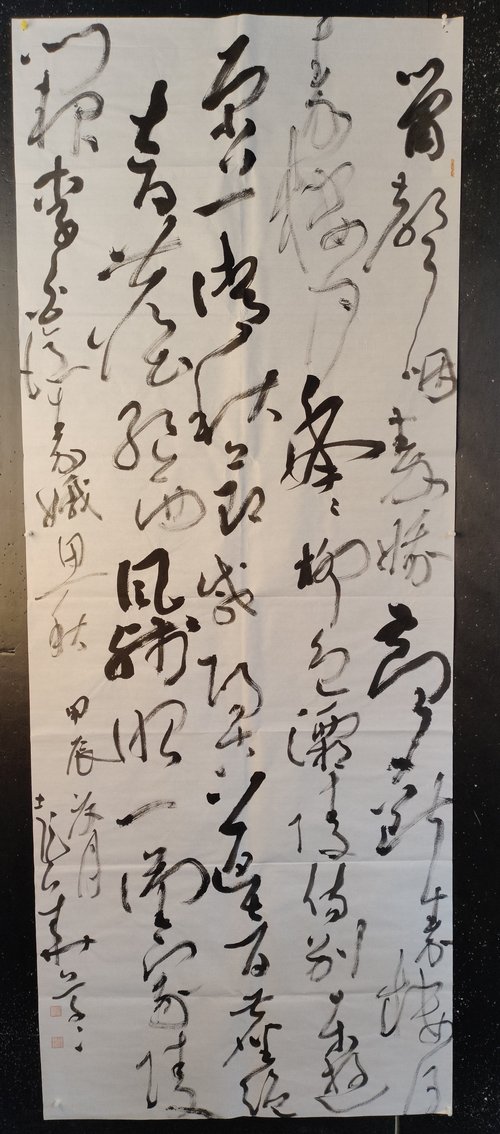 箫声咽秦娥梦断秦楼月
秦楼月年年柳色灞陵伤别乐游
原上清秋节咸阳古道音尘绝
音尘绝西风残照汉家陵
阙 李白忆秦娥思秋 甲辰 月